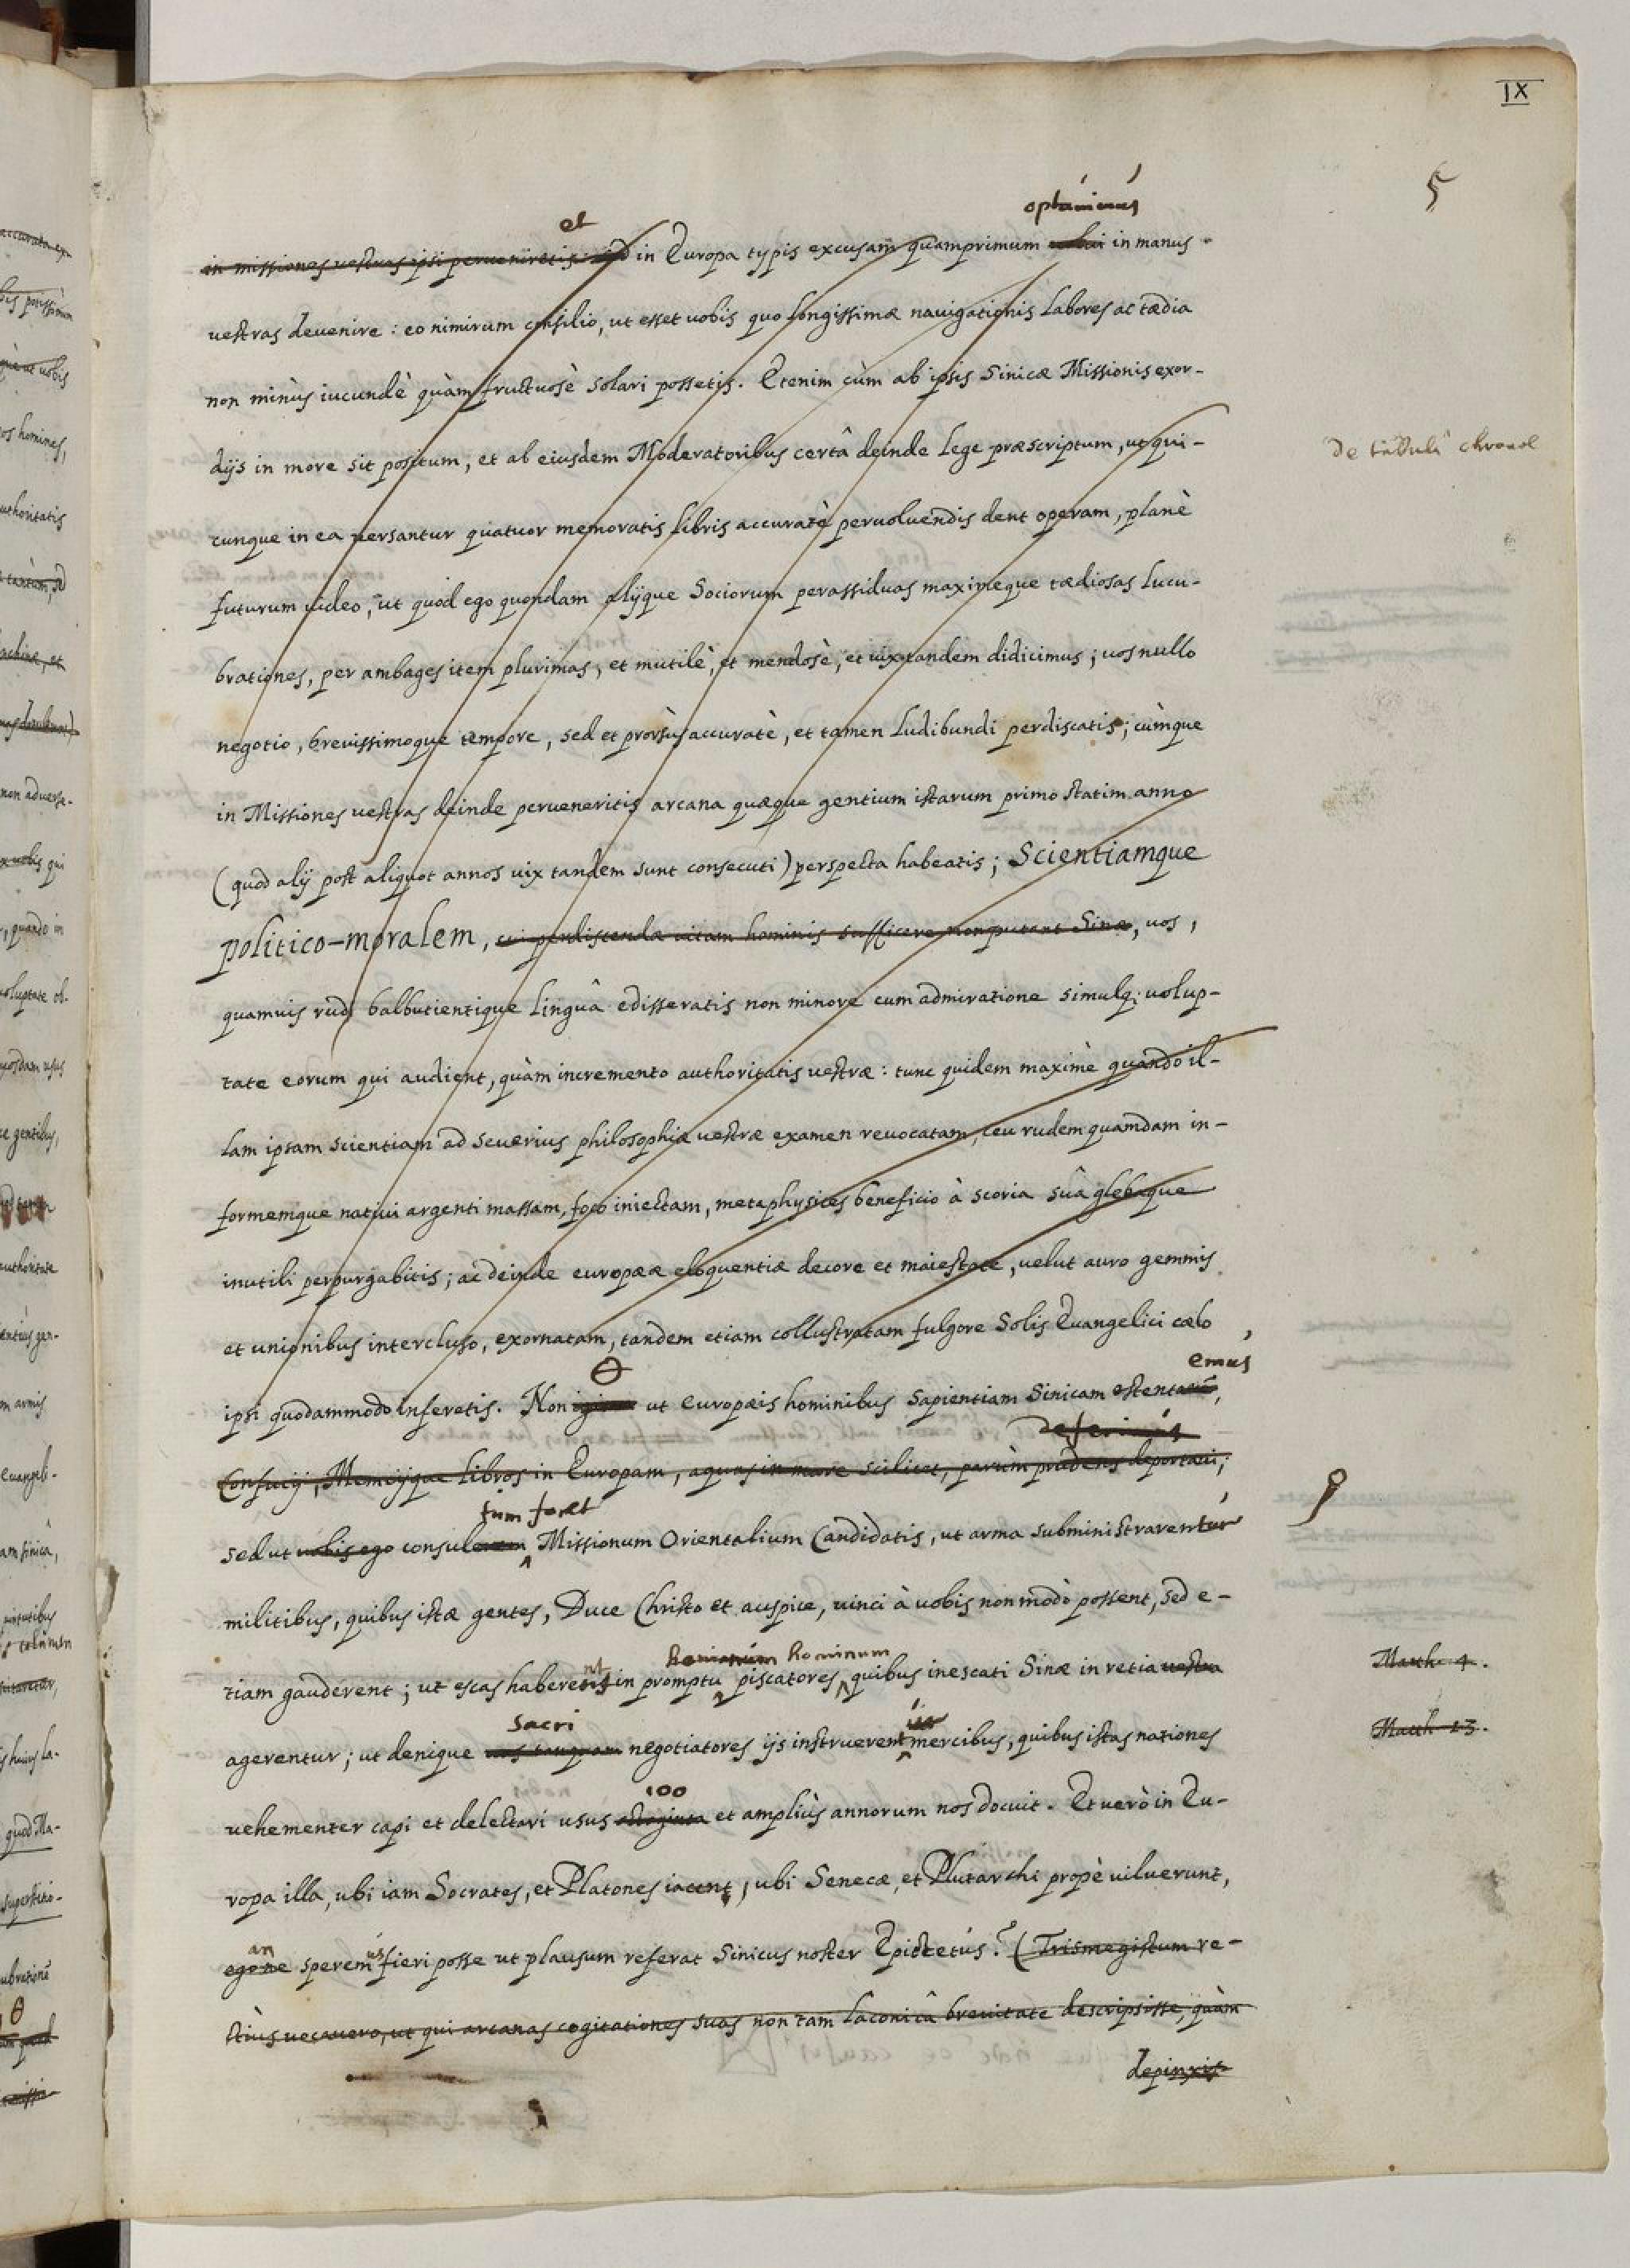 IX
5
et optauimus
in missiones vestras ipsi perveniretis id in Europa typis excusam quamprimum volui in manus
vestras devenire : eo nimirum consilio, ut esset vobis quo longissimæ navigationis labores ac tædia
non minùs iucundè quàm fructuosè solari possetis. Etenim cùm ab ipsis Sinicæ Missionis exor-
dijs in more sit positum, et ab eiusdem Moderatoribus certâ deinde lege præscriptum, ut qui-
De tabulâ chronol
cunque in ea versantur quatuor memoratis libris accuratè pervolvendis dent operam, planè
futurum video, ut quod ego quondam alijque Sociorum perassiduas maximeque tædiosas lucu-
brationes, per ambages item plurimas, et mutilè, et mendosè, et vix tandem didicimus ; vos nullo
negotio, brevissimoque tempore, sed et prorsùs accuratè, et tamen ludibundi perdiscatis; cùmque
in Missiones vestras deinde perveneritis arcana quæque gentium istarum primo statim anno
(quod alij post aliquot annos vix tandem sunt consecuti) perspecta habeatis ; Scientiamque
politico-moralem, cui perdiscendæ vitam hominis sufficere non putant Sinæ, vos,
quamvis rudi balbutientique linguâ edisseratis non minore cum admiratione simulq; volup-
tate eorum qui audient, quàm incremento authoritatis vestræ : tunc quidem maximè quando il-
lam ipsam scientiam ad severius philosophiæ vestræ examen revocatam, ceu rudem quamdam in-
formemque nativi argenti massam, foco iniectam, metaphysices beneficio à scoria suâ glebaque
inutili perpurgabitis ; ac deinde europææ eloquentiæ decore et maiestate, velut auro gemmis
et unionibus intercluso, exornatam, tandem etiam collustratam fulgore Solis Evangelici cælo
θ emus
ipsi quodammodo inferetis. Non igitur ut europæis hominibus sapientiam Sinicam ostentarem,
deferimus
Confucij, Memcijque libros in Europam, aquas in mare scilicet, parùm prudens deportavi;
tum foret
sed ut vobis ego consulerem Missionum Orientalium Candidatis, ut arma subministrarentur
militibus, quibus istæ gentes, Duce Christo et auspice, vinci à vobis non modò possent, sed e-
nt hominum hominum
tiam gauderent ; ut escas haberetis in promptu piscatores, quibus inescati Sinæ in retia vestra
Matth. 4.
sacri
agerentur ; ut denique vos tanquam negotiatores ijs instruerent mercibus, quibus istas nationes
Matth 13.
100
vehementer capi et delectari usus octoginta et ampliùs annorum nos docuit. Et verò in Eu-
ropa illa, ubi iam Socrates, et Platones iacent, ubi Senecæ, et Plutarchi propè viluerunt,
an us
egone sperem fieri posse ut plausum referat Sinicus noster Epictetus? (Trismegistum re-
ctius vocavero, ut qui arcanas cogitationes suas non tam laconicâ brevitate descripsisse, quàm
depinxis